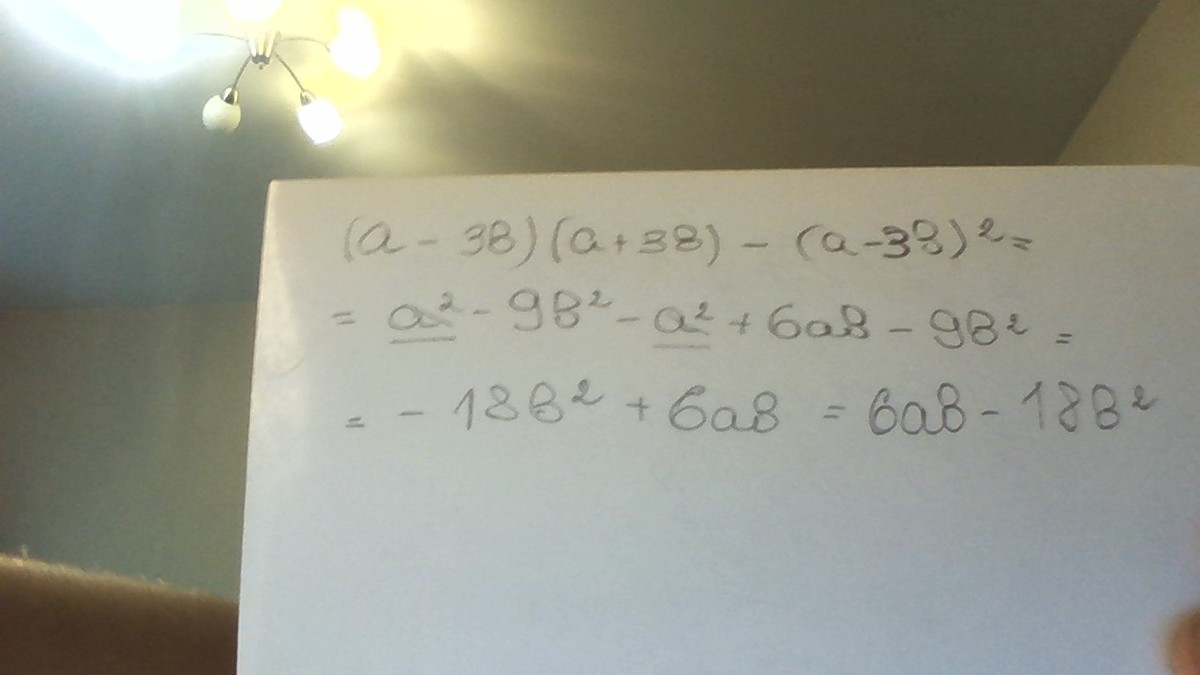 (a - 3в)(a+3в) - (a-3в)²=
= a² - 9в² - a² + 6aв - 9в² =
= - 18в² + 6aв = 6aв - 18в²